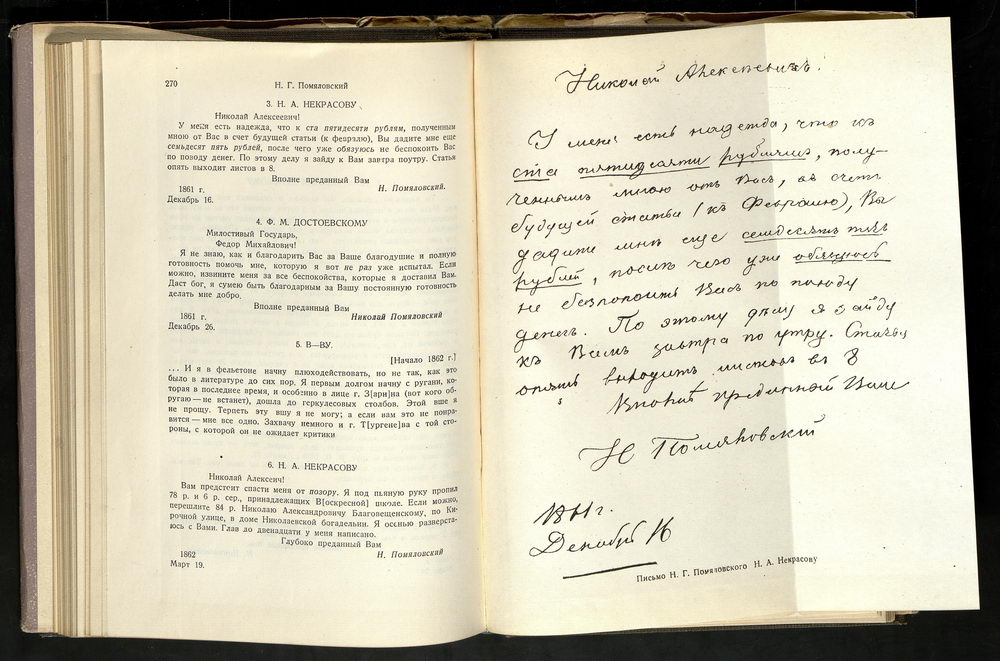 270
Н. Г. Помяловский
3. Н. А. НЕКРАСОВУ
Николай Алексеевич!
У меня есть надежда, что к ста пятидесяти рублям, полученным
мною от Вас в счет будущей статьи (к февралю), Вы дадите мне еще
семьдесят пять рублей, после чего уже обязуюсь не беспокоить Вас
по поводу денег. По этому делу я зайду к Вам завтра поутру. Статья
опять выходит листов в 8.
Вполне преданный Вам
1861 г. Н. Помяловский.
Декабрь 16.
4. Ф. М. ДОСТОЕВСКОМУ
Милостивый Государь,
Федор Михайлович!
Я не знаю, как и благодарить Вас за Ваше благодушие и полную
готовность помочь мне, которую я вот не раз уже испытал. Если
можно, извините меня за все беспокойства, которые я доставил Вам.
Даст бог, я сумею быть благодарным за Вашу постоянную готовность
делать мне добро.
Вполне преданный Вам
1861 г. Николай Помяловский
Декабрь 26.
5. В—ВУ.
[Начало 1862 г.]
... И я в фельетоне начну плюходействовать, но не так, как это
было в литературе до сих пор. Я первым долгом начну с ругани, ко-
торая в последнее время, и особенно в лице г. З[ари]на (вот кого об-
ругаю — не встанет), дошла до геркулесовых столбов. Этой вше я
не прощу. Терпеть эту вшу я не могу; а если вам это не понра-
вится — мне все одно. Захвачу немного и г. Т[ургене]ва с той сто-
роны, с которой он не ожидает критики
6. Н. А. НЕКРАСОВУ
Николай Алексеич!
Вам предстоит спасти меня от позору. Я под пьяную руку пропил
78 р. и 6 р. сер., принадлежащих В[оскресной] школе. Если можно,
перешлите 84 р. Николаю Александровичу Благовещенскому, по Ки-
рочной улице, в доме Николаевской богадельни. Я осенью разверста-
юсь с Вами. Глав до двенадцати у меня написано.
Глубоко преданный Вам
1862 Н. Помяловский
Март 19.
Николай Алексеевичъ.
У меня есть надежда, что къ
ста пятидесяти рублямъ, полу-
ченнымъ мною отъ Васъ, въ счетъ
будущей статьи (къ Февралю), Вы
дадите мнѣ еще семдесятъ пять
рублей, послѣ чего уже обязуюсь
не безпокоить Васъ по поводу
денегъ. По этому дѣлу я зайду
къ Вамъ завтра по утру. Статья
опять выходитъ листовъ въ 8
Вполнѣ преданный Вамъ
Н Помяловский
1861 г.
Декабрь 16
Письмо Н. Г. Помяловского Н. А. Некрасову